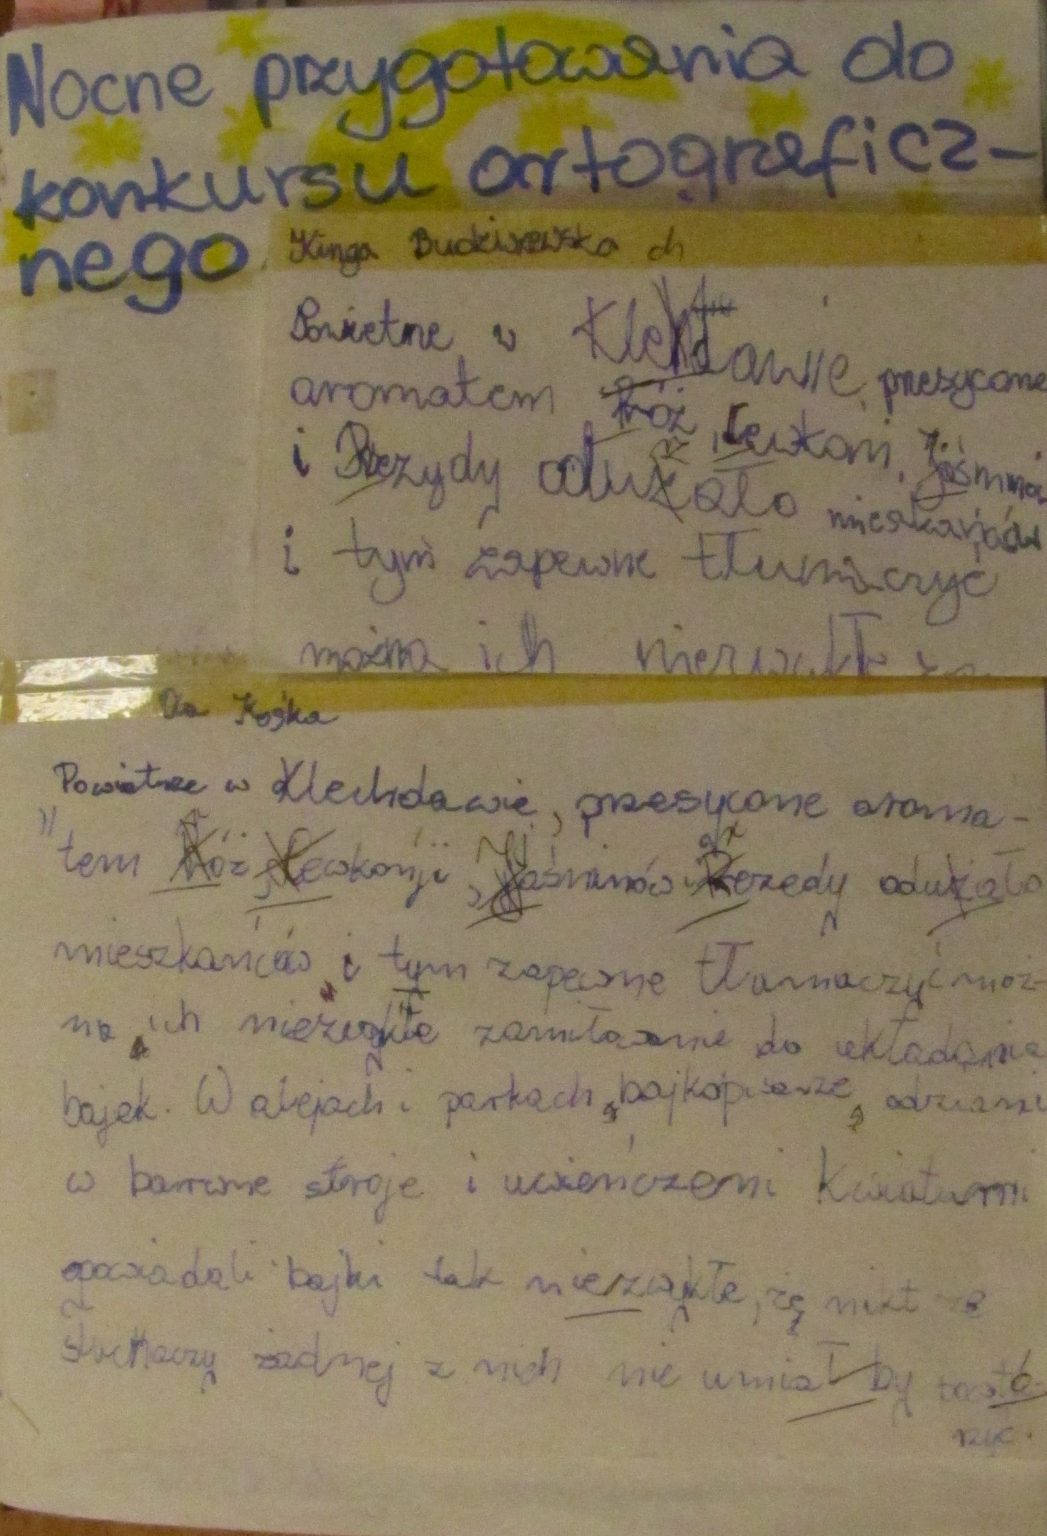 Nocne przygotowania do
konkursu ortograficz-
nego
Kinga ch
w przesycone
aromatem róż, Lewkoni,
i Rezydy odużało
i tym zapewne tłumaczyć
można ich
Ola Kośka
Powietrze w Klechdawie, przesycone aroma-
tem Róż, Lewkonji, Jaśminów i Rezedy odużało
mieszkańców i tym zapewne tłumaczyć moż-
na ich niezwykłe zamiłowanie do układania
bajek. W alejach i parkach, bajkopisarze, odziani
w barwne stroje i uwieńczeni kwiatami
opowiadali bajki tak niezwykłe, że nikt ze
słuchaczy żadnej z nich nie umiał by powtó-
rzyć.